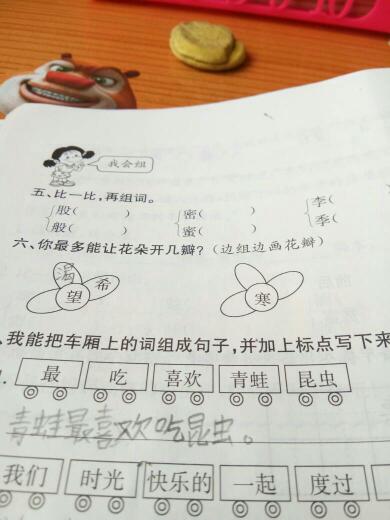 我会组
五、比一比，再组词。
股（ ） 密（ ） 李（
般（ ） 蜜（ ） 季（
六、你最多能让花朵开几瓣？（边组边画花瓣）
渴 希
望 寒
、我能把车厢上的词组成句子，并加上标点写下来
最 吃 喜欢 青蛙 昆虫
青蛙最喜欢吃昆虫。
我们 时光 快乐的 一起 度过